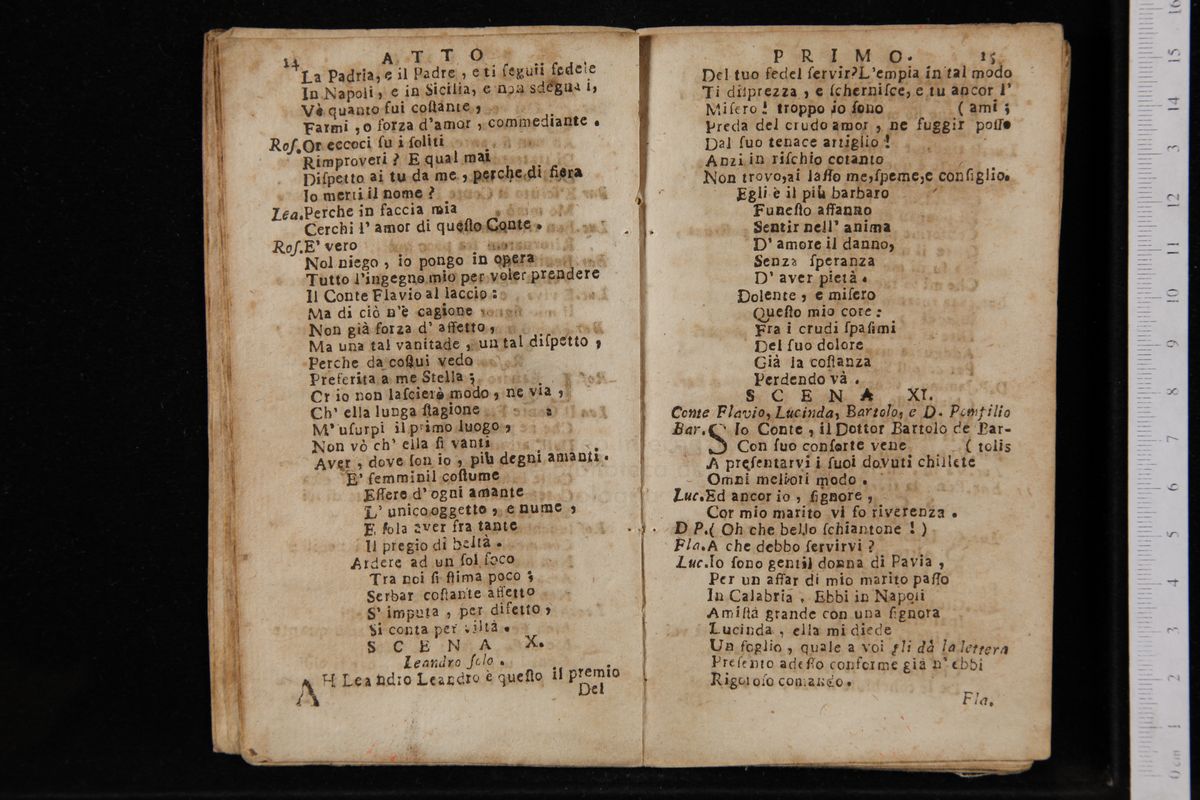 14 ATTO
La Padria, e il Padre, e ti seguii fedele
In Napoli, e in Sicilia, e non sdegnai,
Vè quanto fui costante,
Farmi, o forza d'amor, commediante.
Ros. Or eccoci su i soliti
Rimproveri? E qual mai
Dispetto ai tu da me, perche di fiera
Io merti il nome?
Lea. Perche in faccia mia
Cerchi l'amor di questo Conte.
Ros. E' vero
Nol niego, io pongo in opera
Tutto l'ingegno mio per voler prendere
Il Conte Flavio al laccio:
Ma di ciò n'è cagione
Non già forza d'affetto,
Ma una tal vanitade, un tal dispetto,
Perche da costui vedo
Preferita a me Stella;
Or io non lascierò modo, ne via,
Ch'ella lunga stagione
M'usurpi il primo luogo,
Non vò ch'ella si vanti
Aver, dove son io, più degni amanti.
E' femminil costume
Essere d'ogni amante
L'unico oggetto, e nume,
E sola aver fra tante
Il pregio di beltà.
Ardere ad un sol foco
Tra noi si stima poco;
Serbar costante affetto
S'imputa, per difetto,
Si conta per viltà.
SCENA X.
Leandro solo.
AH Leandro Leandro è questo il premio
Del
PRIMO. 15
Del tuo fedel servir? L'empia in tal modo
Ti disprezza, e schernisce, e tu ancor l'
Misero! troppo io sono (ami;
Preda del crudo amor, ne fuggir posso
Dal suo tenace artiglio!
Anzi in rischio cotanto
Non trovo, ai lasso me, speme, e consiglio.
Egli è il più barbaro
Funesto affanno
Sentir nell'anima
D'amore il danno,
Senza speranza
D'aver pietà.
Dolente, e misero
Questo mio core:
Fra i crudi spasimi
Del suo dolore
Già la costanza
Perdendo và.
SCENA XI.
Conte Flavio, Lucinda, Bartolo, e D. Ponfilio
Bar. SIo Conte, il Dottor Bartolo de Bar-
Con suo consorte vene (tolis
A presentarvi i suoi dovuti chillete
Omni meliori modo.
Luc. Ed ancor io, signore,
Cor mio marito vi fo riverenza.
D P. (Oh che bello schiantone!)
Fla. A che debbo servirvi?
Luc. Io sono gentil donna di Pavia,
Per un affar di mio marito passo
In Calabria. Ebbi in Napoli
Amistà grande con una signora
Lucinda, ella mi diede
Un foglio, quale a voi gli dà la lettera
Presento adesso conforme già n'ebbi
Rigoroso comando.
Fla.